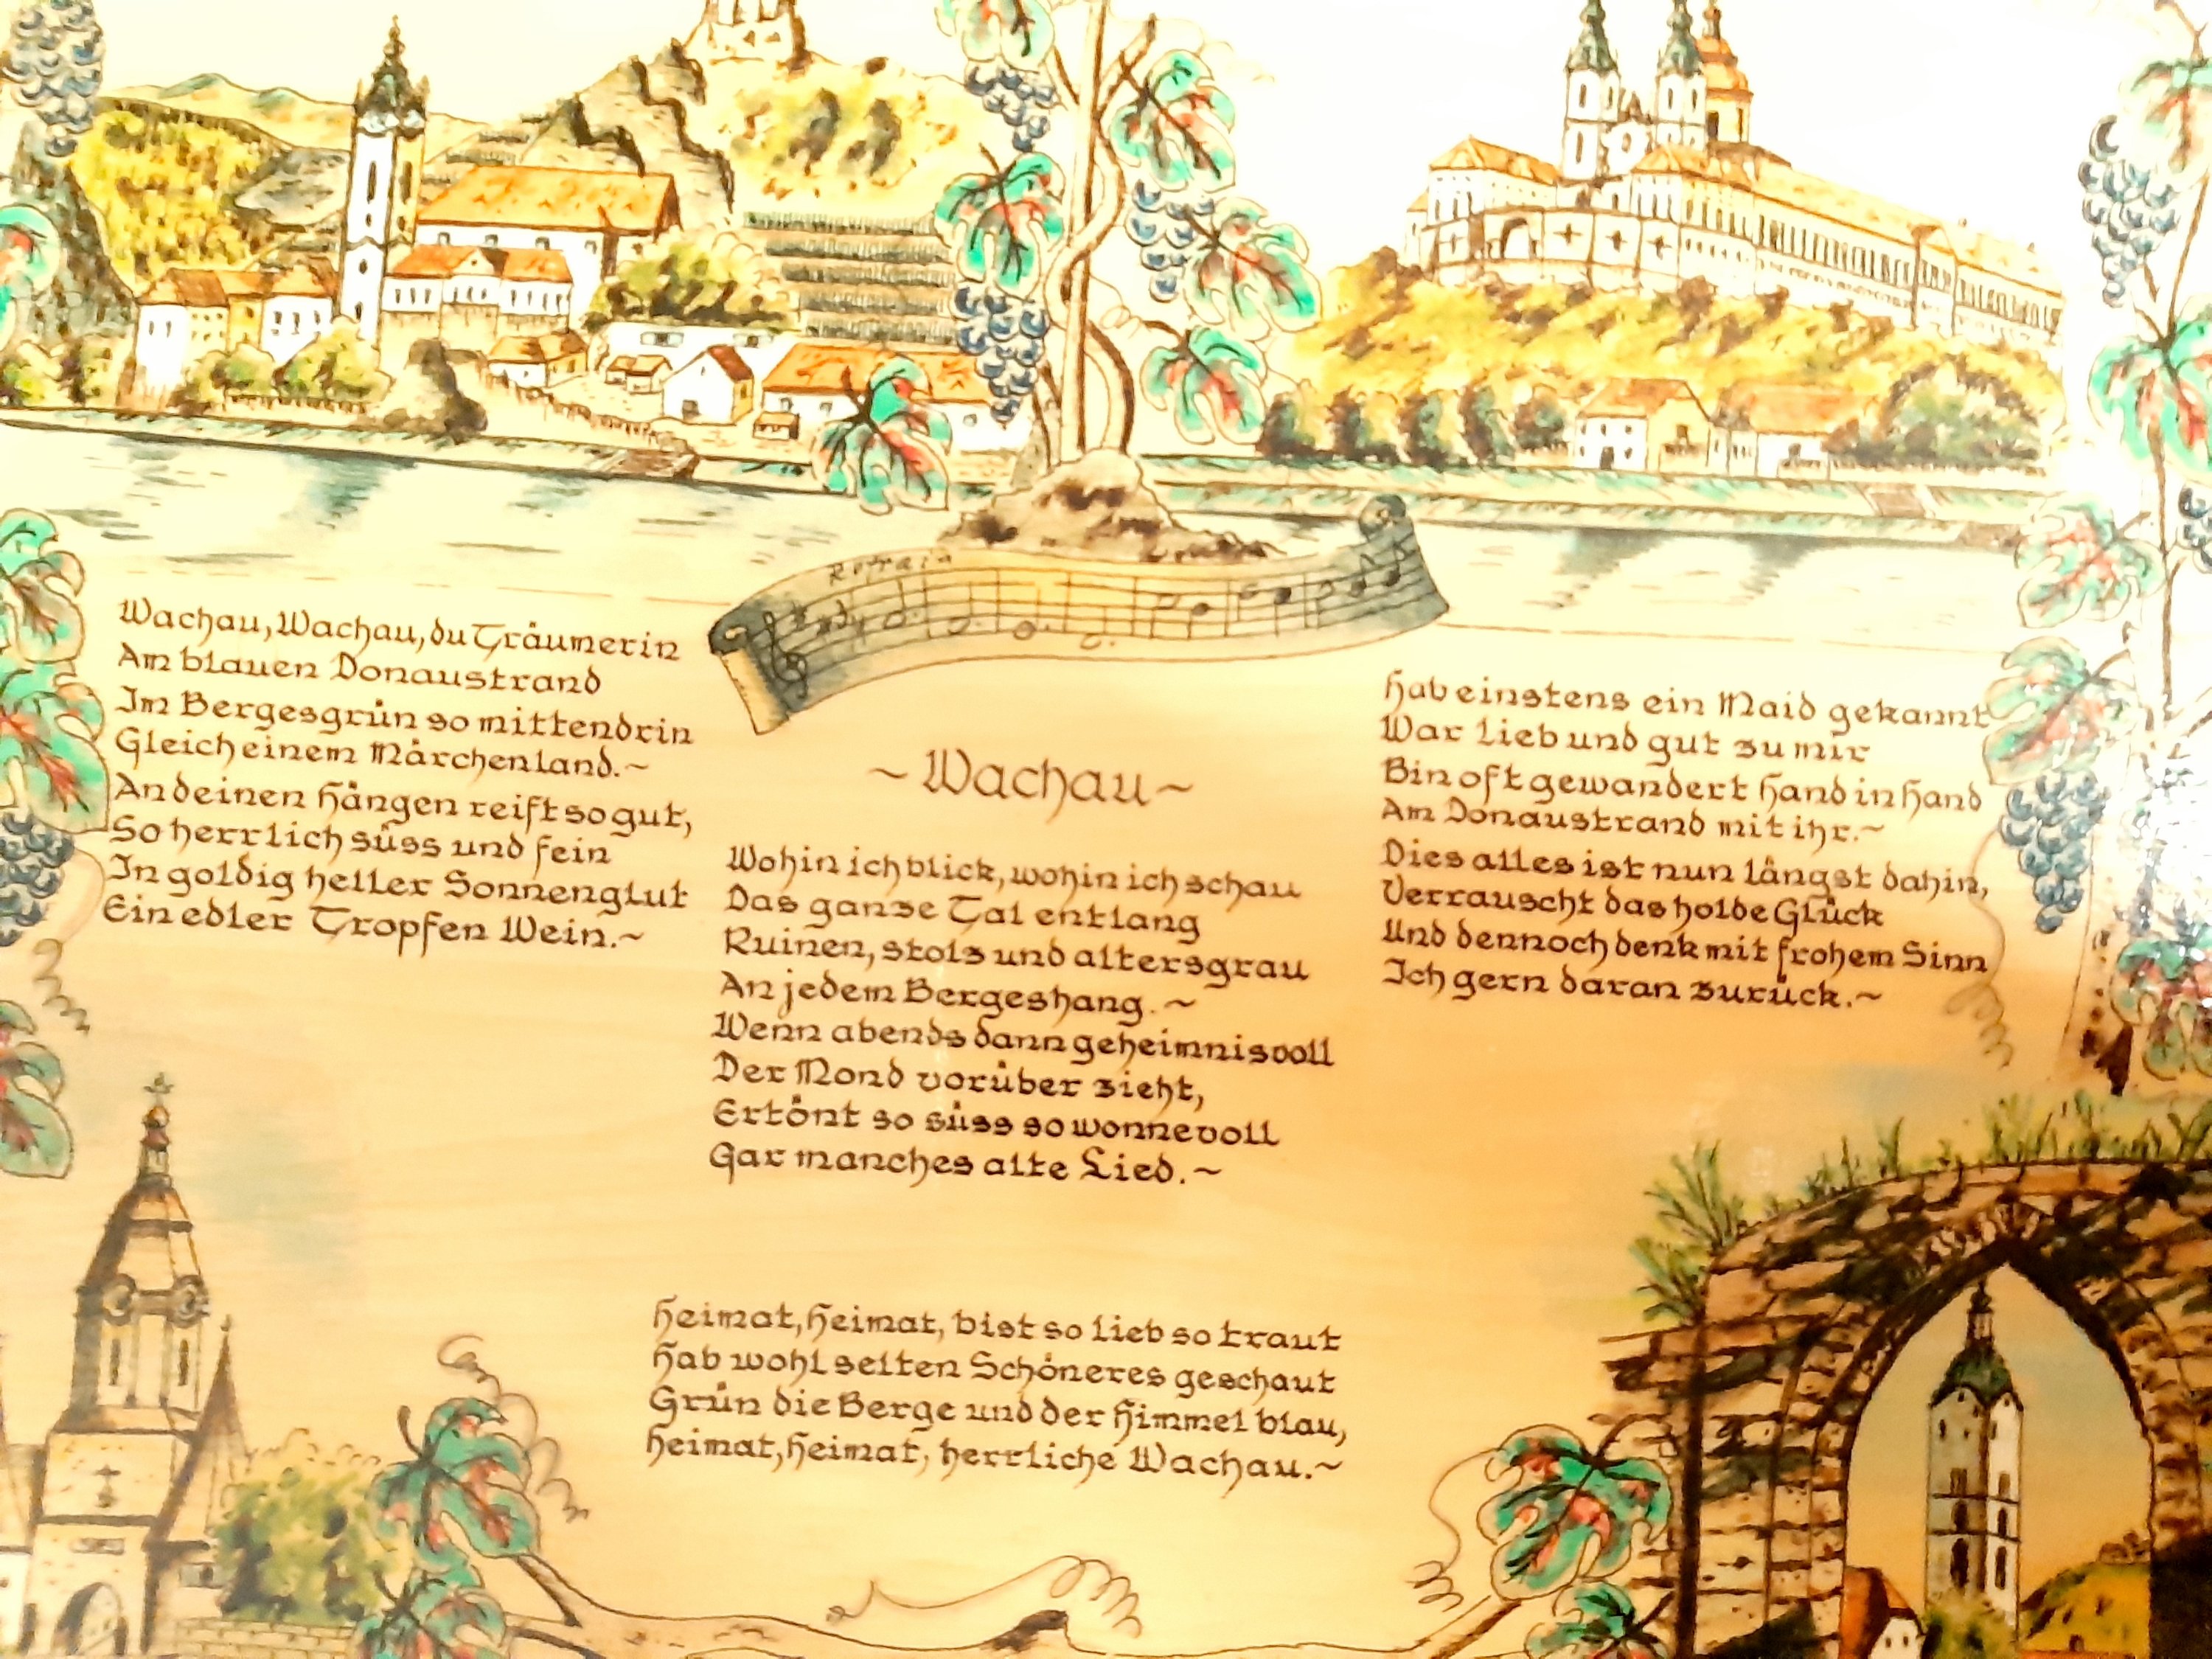 Refrain
Wachau, Wachau, du Träumerin
Am blauen Donaustrand
Im Bergesgrün so mittendrin
Gleich einem Märchenland.~
An deinen Hängen reift so gut,
So herrlich süss und fein
In goldig heller Sonnenglut
Ein edler Tropfen Wein.~
~Wachau~
Wohin ich blick, wohin ich schau
Das ganze Tal entlang
Ruinen, stolz und altersgrau
An jedem Bergeshang.~
Wenn abends dann geheimnisvoll
Der Mond vorüber zieht,
Ertönt so süss so wonnevoll
Gar manches alte Lied.~
Hab einstens ein Maid gekannt
War lieb und gut zu mir
Bin oft gewandert Hand in Hand
Am Donaustrand mit ihr.~
Dies alles ist nun längst dahin,
Verrauscht das holde Glück
Und dennoch denk mit frohem Sinn
Ich gern daran zurück.~
Heimat, Heimat, bist so lieb so traut
Hab wohl selten Schöneres geschaut
Grün die Berge und der Himmel blau,
Heimat, Heimat, herrliche Wachau.~